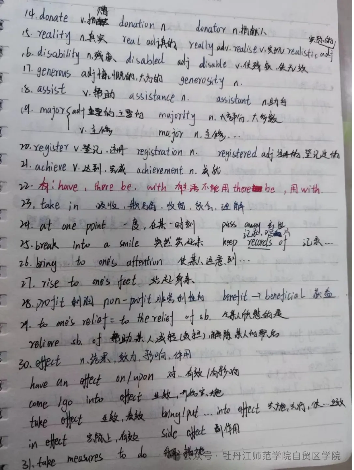 14. donate v.捐赠 donation n. donator n.捐献人
15. reality n.真实 real adj.真的 really adv. realise v.实现 realistic adj
16. disability n.残疾, disabled adj disable v.使残疾, 使无效
17. generous adj 慷慨的, 大方的 generosity n.
18. assist v.帮助 assistance n. assistant n.助手
19. major adj 主要的 majority n.大部分, 大多数
v.主修 major n.主修...
20. register v.登记, 注册 registration n. registered adj 登记过的
21. achieve v.达到, 完成 achievement n.成就
22. 有: have, there be, with 有 不能用 there be, 用 with.
23. take in 吸收, 欺骗, 收留, 理解
24. at one point 一度, 在某一时刻 pass away 去世
25. break into a smile 突然笑起来 keep records of 记录...
26. bring to one's attention 使某人注意到...
27. rise to one's feet 站起身来
28. profit 利润 non-profit 非营利性的 benefit → beneficial 有益
29. to one's relief = to the relief of sb. 令某人欣慰的是
relieve sb. of 帮助某人减轻(负担), 解除某人的职务
30. effect n.结果, 效力, 影响, 作用
have an effect on/upon 对...有效/有影响
come/go into effect 生效, 开始实施
take effect 生效, 奏效 bring/put...into effect 实施, 实行, 使...生效
in effect 实际上, 有效 side effect 副作用
31. take measures to do 采取措施
牡丹江师范学院自贸区学院